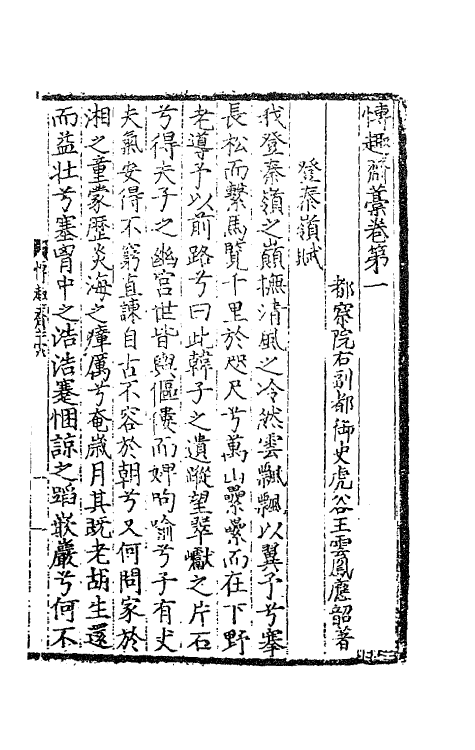 博趣齋藁卷第一
都察院右副都御史虎谷王雲鳳應韶著
登秦嶺賦
我登秦嶺之巔撫清風之冷然雲飄飄以翼予兮搴
長松而繫馬覽十里於咫尺兮萬山纍纍而在下野
老導予以前路兮曰此韓子之遺蹤望翠巘之片石
兮得夫子之幽宮世皆與傴僂而婢呴喻兮子有丈
夫氣安得不窮直諫自古不容於朝兮又何問家於
湘之童蒙歷炎海之瘴厲兮奄歲月其旣老胡生還
而益壯兮塞胷中之浩浩蹇悃諒之蹈嵌巖兮何不